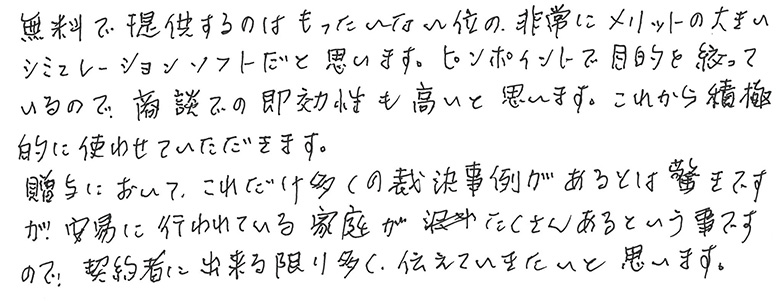 無料で提供するのはもったいない位の、非常にメリットの大きい
シミュレーションソフトだと思います。ピンポイントで目的を絞って
いるので、商談での即効性も高いと思います。これから積極
的に使わせていただきます。
贈与において、これだけ多くの裁決事例があるとは驚きです
が、安易に行われている家庭がたくさんあるという事です
ので、契約者に出来る限り多く、伝えていきたいと思います。